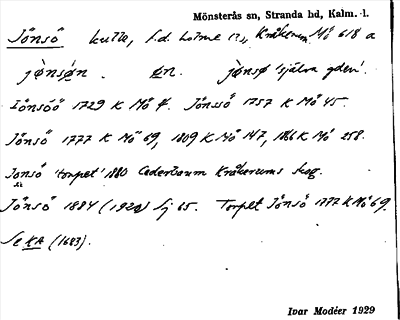 Mönsterås sn, Stranda hd, Kalm. l.
Jönsö kulle, f.d. holme i Kråkerum Mö 618 a
jönsön. ön. jönsö 'själva gden'.
Iönsöö 1729 K Mö 4. Jönsö 1757 K Mö 45.
Jönsö 1777 K Mö 69, 1809 K Mö 147, 1866 K Mö 258.
Jonsö 'torpet' 1880 Cederbaum Kråkerums skog.
Jönsö 1884 (1920) Sj 65. Torpet Jönsö 1777 K Mö 69.
Se KA (1683).
Ivar Modéer 1929